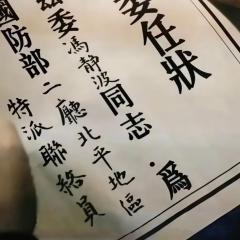 委任狀
茲委馮靜波同志為
國防部二廳北平地區
特派聯絡員